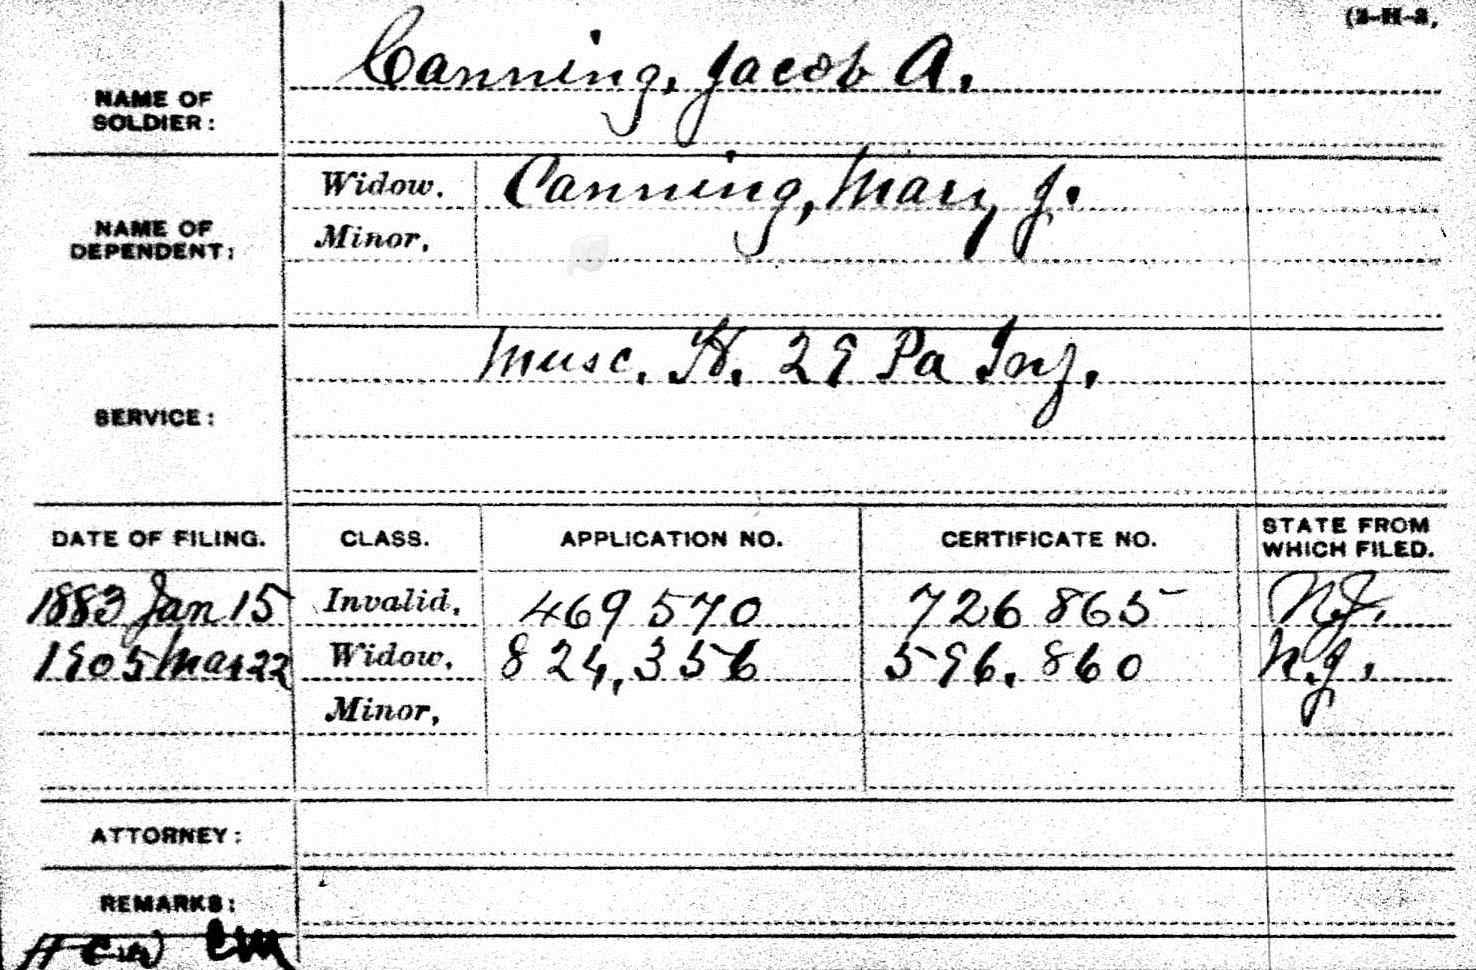 (3-H-3,
NAME OF SOLDIER: Canning, Jacob A.
NAME OF DEPENDENT: Widow. Canning, Mary J.
Minor.
SERVICE: Musc. H. 29 Pa Inf.
DATE OF FILING. CLASS. APPLICATION NO. CERTIFICATE NO. STATE FROM WHICH FILED.
1883 Jan 15 Invalid, 469 570 726 865 N.J.
1905 Mar 22 Widow, 824,356 596.860 N.J.
Minor,
ATTORNEY:
REMARKS: